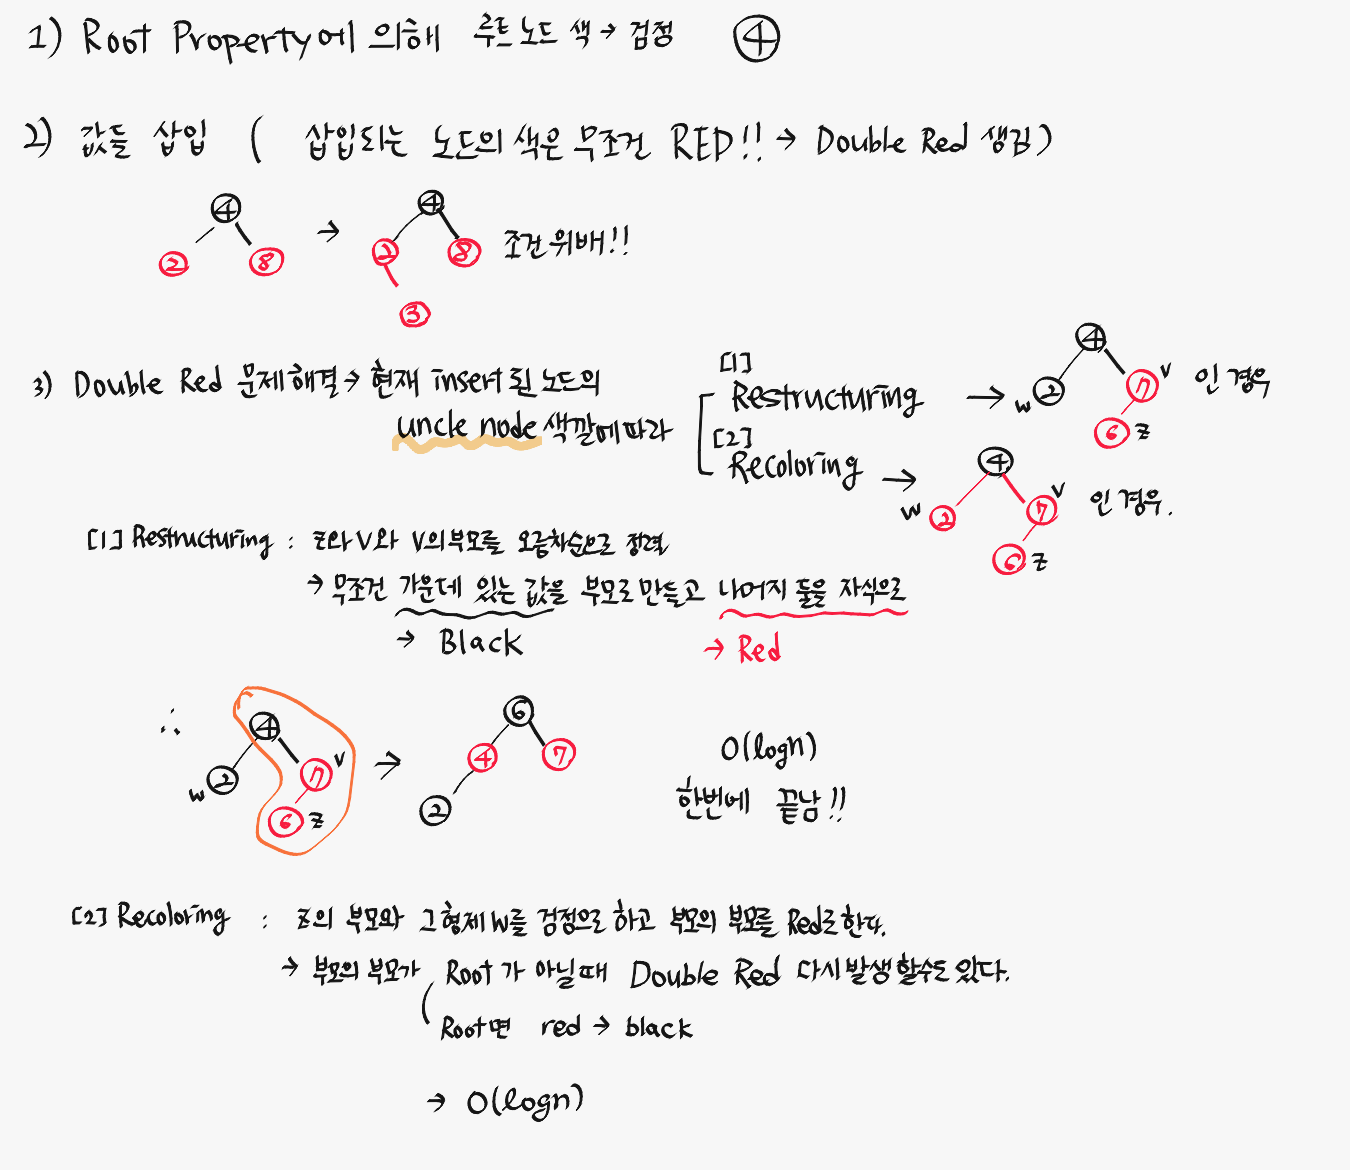 1) Root Property에 의해 루트 노드 색 → 검정 ④
2) 값들 삽입 ( 삽입되는 노드의 색은 무조건 RED!! → Double Red 생김)
4 → 4
2 8 2 8 조건위배!!
3
3) Double Red 문제해결 → 현재 insert된 노드의
uncle node 색깔에따라
[1]
Restructuring → 4 w 2 7 v 6 z 인 경우
[2]
Recoloring → 4 w 2 7 v 6 z 인 경우.
[1] Restructuring : z와 v와 v의부모를 오름차순으로 정렬
→ 무조건 가운데 있는 값을 부모로 만들고 나머지 둘을 자식으로
→ Black → Red
∴ 4 → 6
w 2 7 v 4 7
6 z 2
O(logn)
한번에 끝남!!
[2] Recoloring : z의 부모와 그형제 w를 검정으로 하고 부모의 부모를 Red로 한다.
→ 부모의 부모가 Root가 아닐때 Double Red 다시 발생할수도 있다.
Root면 red → black
→ O(logn)